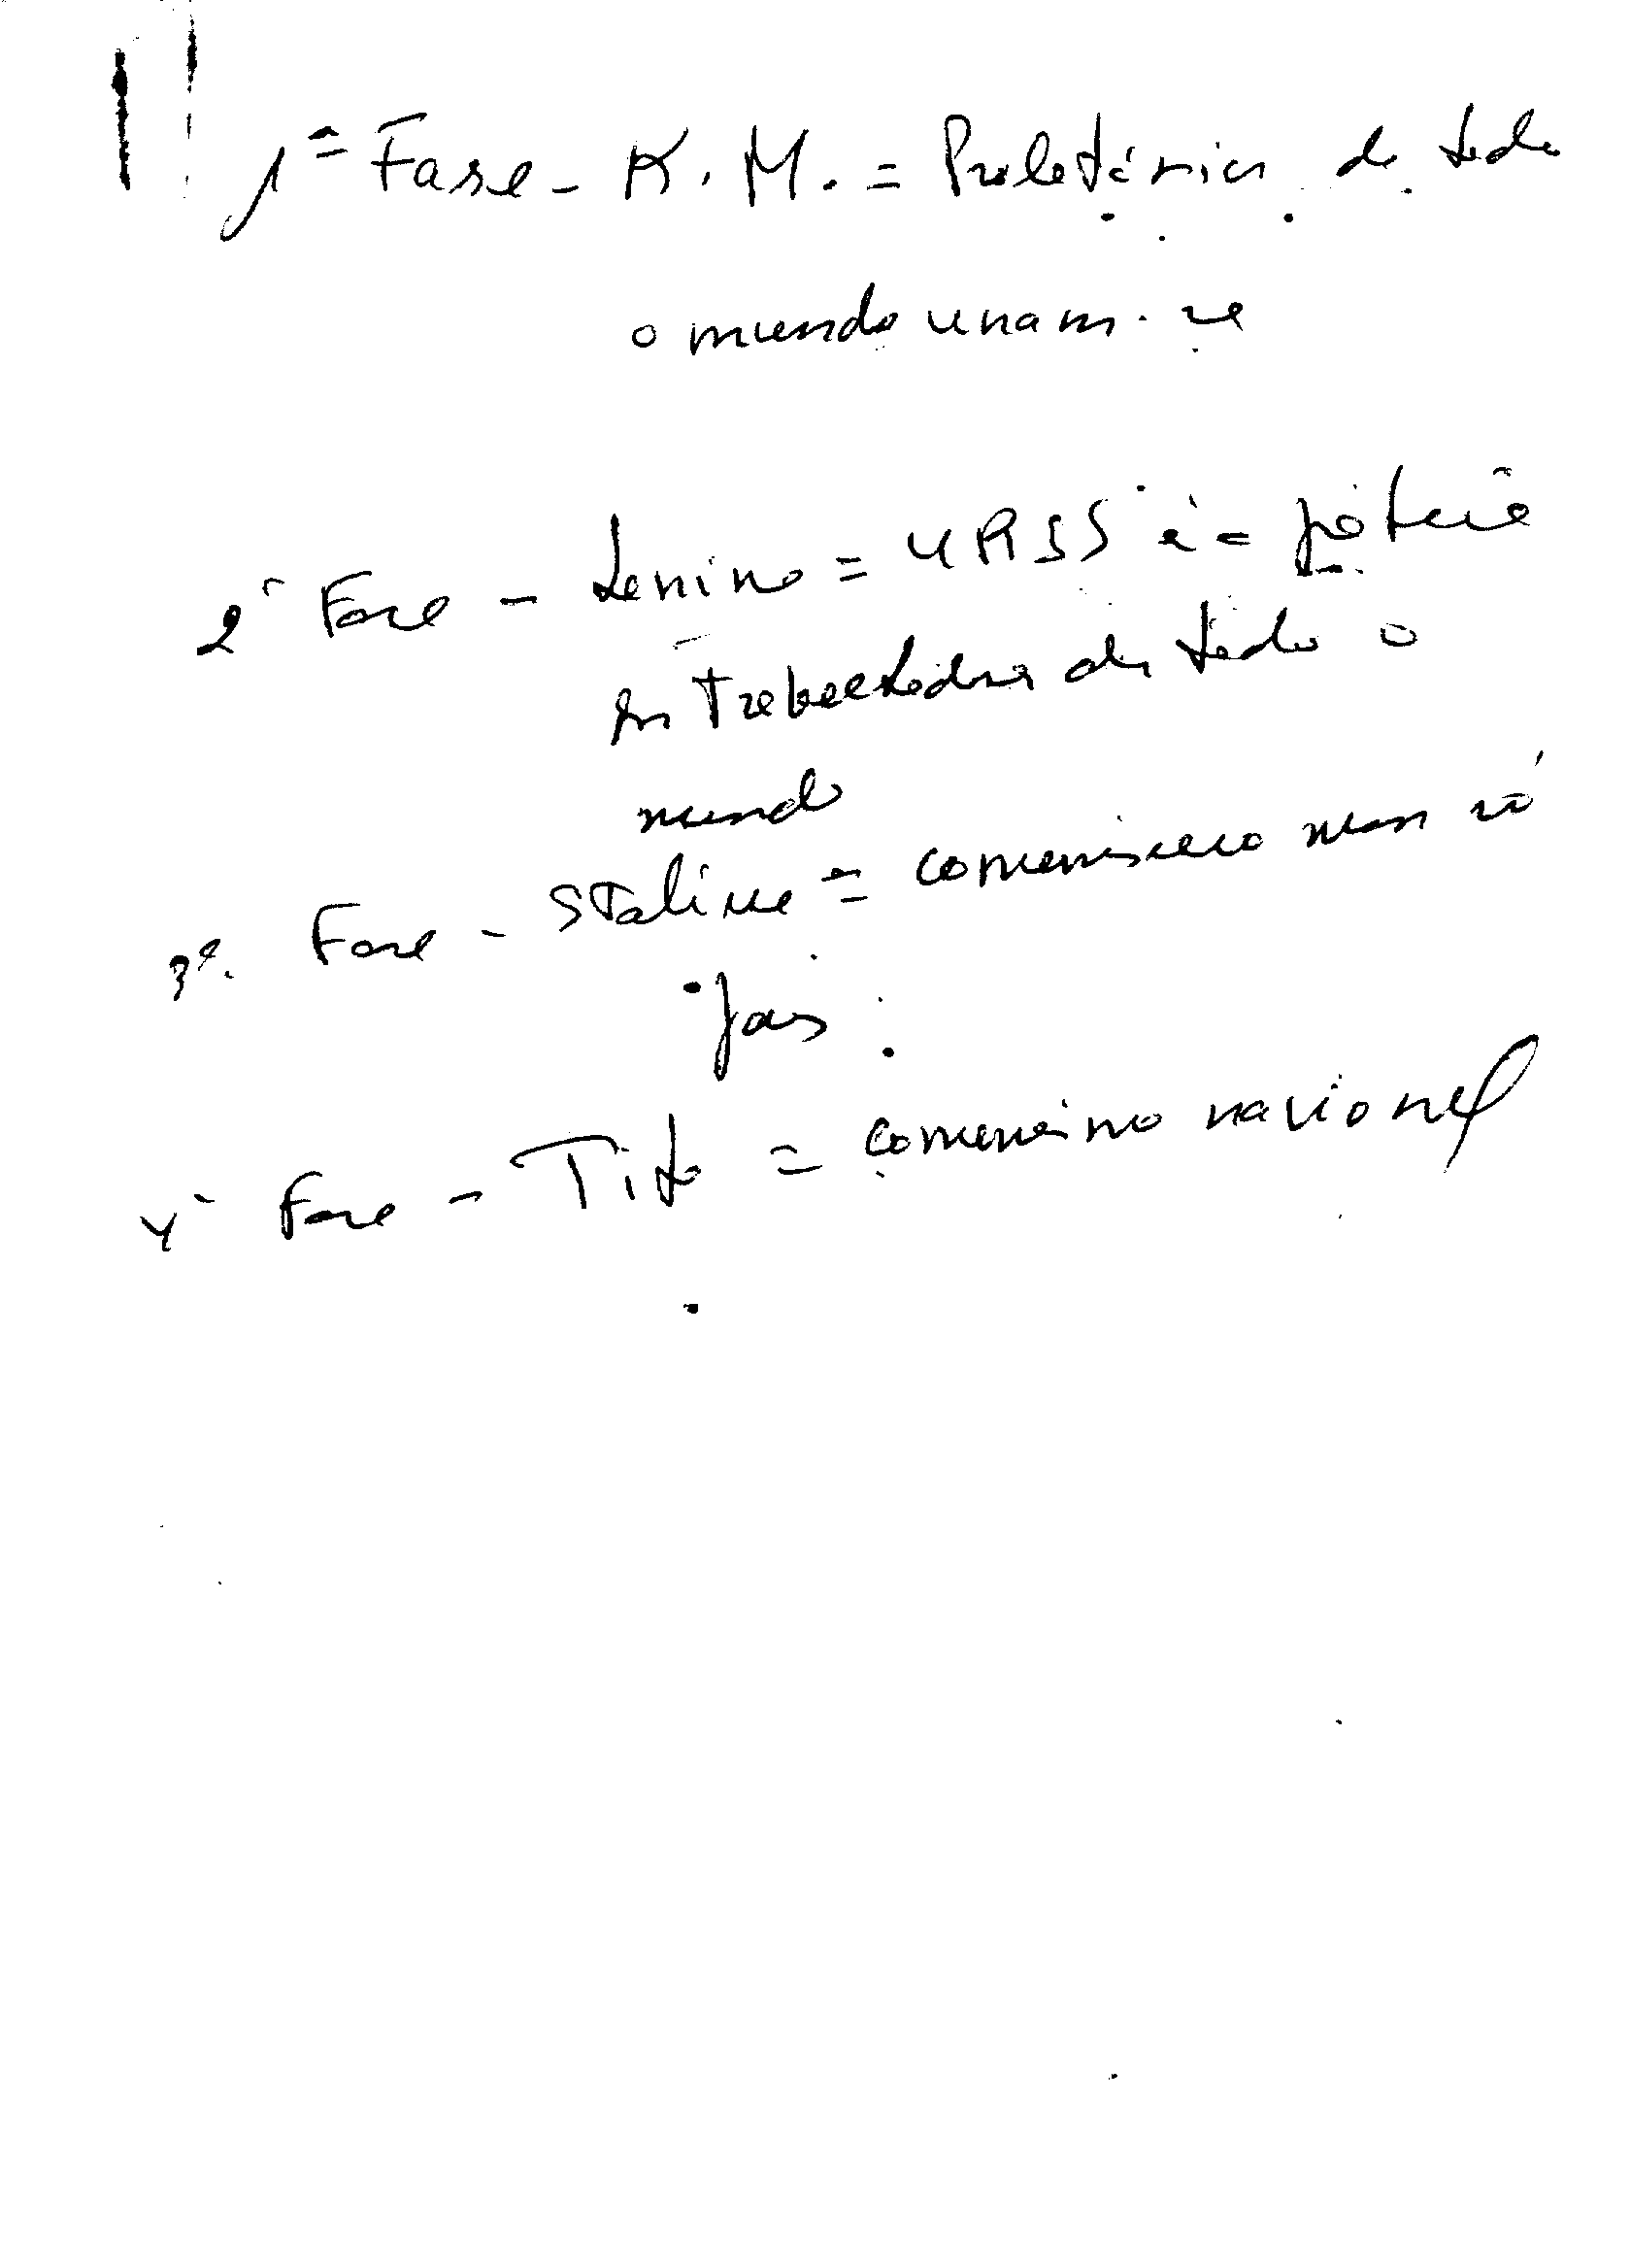 1ª Fase - K. M. = Proletários de todo
o mundo unam-se
2ª Fase - Lenine = URSS é a pátria
dos Trabalhadores de todo o
mundo
3ª Fase - Staline = comunismo num só
país
4ª Fase - Tito = comunismo nacional